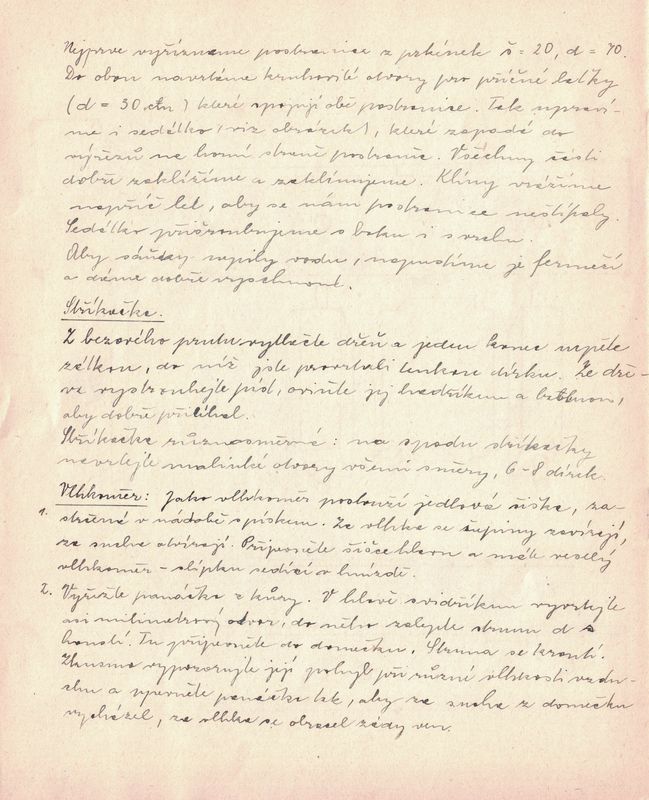 Nejprve vyřízneme postranice z prkének š = 20, d = 70.
Do obou navrtáme kruhovité otvory pro příčné laťky
(d = 30 cm) které spojují obě postranice. Tak upraví-
me i sedátko (viz obrázek), které zapadá do
výřezů na horní straně postranic. Všechny části
dobře zaklížíme a zaklínujeme. Klíny vrážíme
napříč let, aby se nám postranice neštípaly.
Sedátko přišroubujeme s boku i svrchu.
Aby sáňky nepily vodu, napustíme je fermeží
a dáme dobře vyschnout.
Stříkačka.
Z bezového prutu vytlačte dřeň a jeden konec ucpěte
zátkou, do níž jste provrtali tenkou dírku. Ze dře-
va vystrouhejte píst, oviňte jej hadříkem a
aby dobře přiléhal.
Stříkačka různosměrná: na spodu stříkačky
navrtejte malinké otvory všemi směry, 6-8 dírek.
Vlhkoměr: Jako vlhkoměr poslouží jedlová šiška, za-
1. stržená v nádobě s pískem. Za vlhka se šupiny zavírají,
za sucha otvírají. Připevněte šišce hlavu a máte veselý
vlhkoměr - slípku sedící v hnízdě.
2. Vyřežte panáčka z kůry. V hlavě svidříkem vyvrtejte
asi milimetrový otvor, do něho zalepte strunu d
houslí. Tu připevněte do domečku. Struna se kroutí.
Zkusmo vypozorujte její pohyb při různé vlhkosti vzdu-
chu a upevněte panáčka tak, aby za sucha z domečku
vycházel, za vlhka se obracel zády ven.